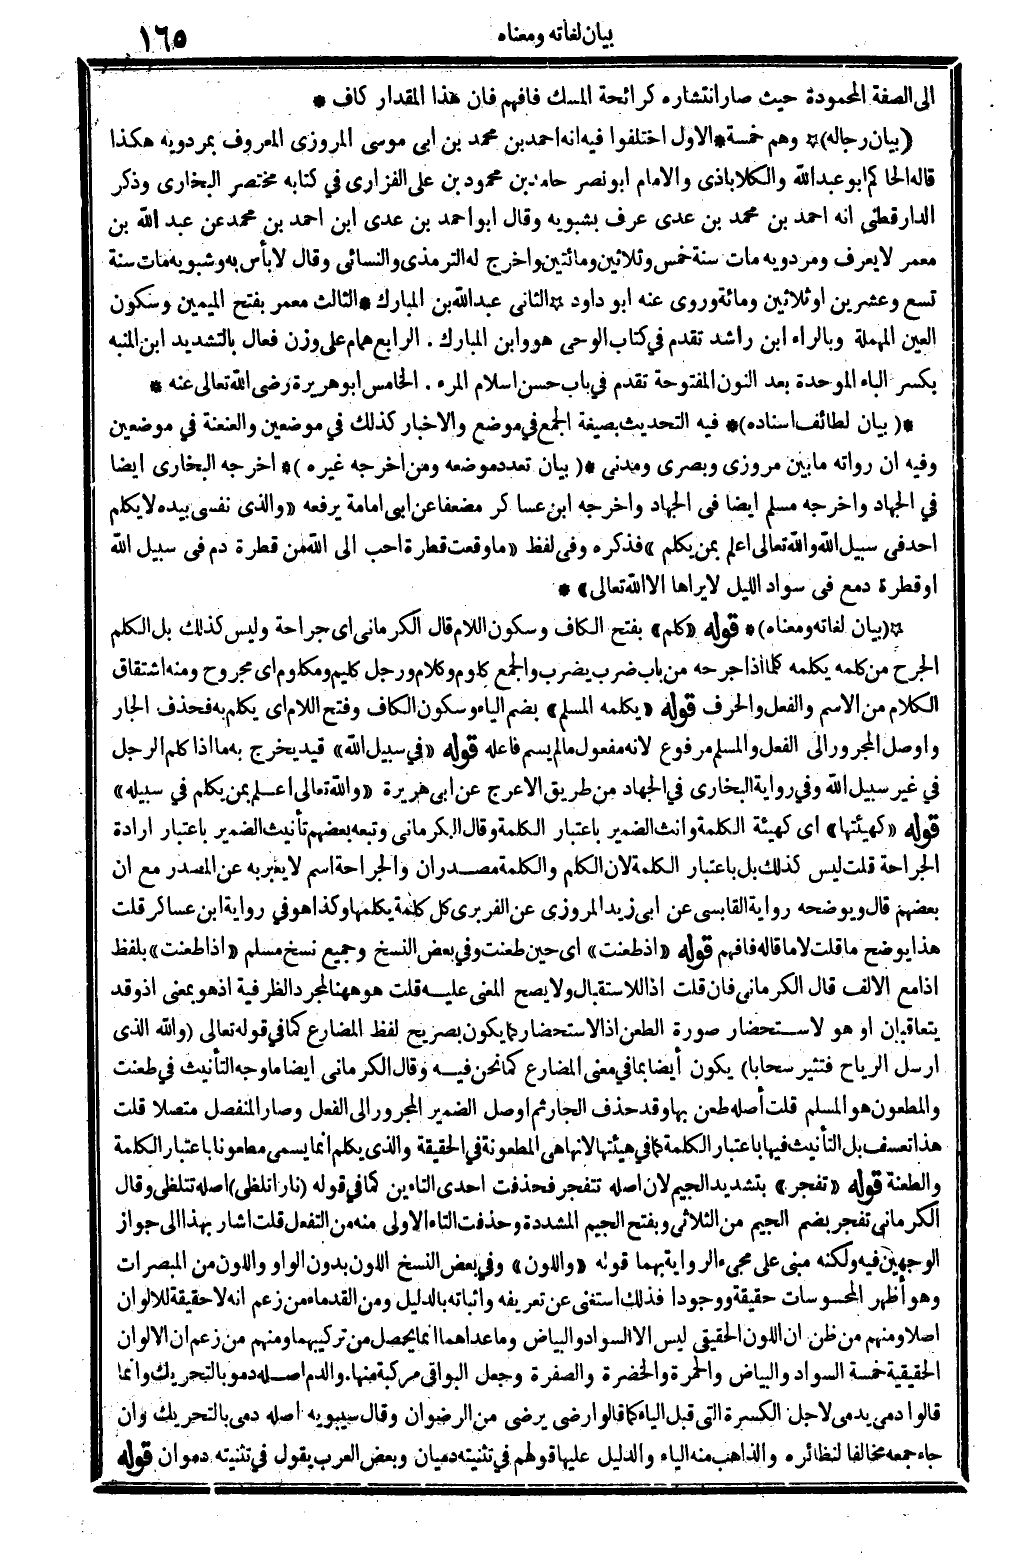 بيان لغاته ومعناه
١٦٥
الى الصفة المحمودة حيث صار انتشاره كرائحة المسك فافهم فان هذا المقدار كاف *
(بيان رجاله)* وهم خمسة*الاول اختلفوا فيه انه احمد بن محمد بن ابى موسى المروزى المعروف بمردويه هكذا
قاله الحاكم ابو عبدالله والكلاباذى والامام ابو نصر حامد بن محمود بن على الفزارى في كتابه مختصر البخارى وذكر
الدارقطنى انه احمد بن محمد بن عدى عرف بشبويه وقال ابو احمد بن عدى ابن احمد بن محمد عن عبد الله بن
معمر لايعرف ومردويه مات سنة خمس وثلاثين ومائتين واخرج له الترمذى والنسائى وقال لابأس به وشبويه مات سنة
تسع وعشرين او ثلاثين ومائة وروى عنه ابو داود *الثانى عبدالله بن المبارك *الثالث معمر بفتح الميمين وسكون
العين المهملة وبالراء ابن راشد تقدم في كتاب الوحى هو وابن المبارك . الرابع همام على وزن فعال بالتشديد ابن المنبه
بكسر الباء الموحدة بعد النون المفتوحة تقدم في باب حسن اسلام المرء . الخامس ابو هريرة رضى الله تعالى عنه *
*( بيان لطائف اسناده)* فيه التحديث بصيغة الجمع في موضع والاخبار كذلك في موضعين والعنعنة في موضعين
وفيه ان رواته مابين مروزى وبصرى ومدنى *( بيان تعدد موضعه ومن اخرجه غيره )* اخرجه البخارى ايضا
في الجهاد واخرجه مسلم ايضا فى الجهاد واخرجه ابن عساكر مضعفا عن ابى امامة يرفعه «والذى نفسى بيده لايكلم
احد فى سبيل الله والله تعالى اعلم بمن يكلم» فذكره وفى لفظ «ماوقعت قطرة احب الى الله من قطرة دم فى سبيل الله
او قطرة دمع فى سواد الليل لايراها الا الله تعالى» *
*(بيان لغاته ومعناه)* قوله «كلم» بفتح الكاف وسكون اللام قال الكرمانى اى جراحة وليس كذلك بل الكلم
الجرح من كلمه يكلمه كلما اذا جرحه من باب ضرب يضرب والجمع كلوم وكلام ورجل كليم ومكلوم اى مجروح ومنه اشتقاق
الكلام من الاسم والفعل والحرف قوله «يكلمه المسلم» بضم الياء وسكون الكاف وفتح اللام اى يكلم به فحذف الجار
واوصل المجرور الى الفعل والمسلم مرفوع لانه مفعول مالم يسم فاعله قوله «في سبيل الله» قيد يخرج به ما اذا كلم الرجل
في غير سبيل الله وفي رواية البخارى في الجهاد من طريق الاعرج عن ابى هريرة «والله تعالى اعلم بمن يكلم في سبيله»
قوله «كهيئتها» اى كهيئة الكلمة وانث الضمير باعتبار الكلمة وقال الكرمانى وتبعه بعضهم تأنيث الضمير باعتبار ارادة
الجراحة قلت ليس كذلك بل باعتبار الكلمة لان الكلم والكلمة مصدران والجراحة اسم لايعبر به عن المصدر مع ان
بعضهم قال ويوضحه رواية القابسى عن ابى زيد المروزى عن الفربرى كل كلمة يكلمها وكذا هو في رواية ابن عساكر قلت
هذا يوضح ماقلت لا ماقاله فافهم قوله «اذ طعنت» اى حين طعنت وفي بعض النسخ وجميع نسخ مسلم «اذا طعنت» بلفظ
اذا مع الالف قال الكرمانى فان قلت اذا للاستقبال ولايصح المعنى عليه قلت هو ههنا لمجرد الظرفية اذ هو بمعنى اذ وقد
يتعاقبان او هو لاستحضار صورة الطعن اذ الاستحضار كما يكون بصريح لفظ المضارع كما في قوله تعالى (والله الذى
ارسل الرياح فتثير سحابا) يكون أيضا بما في معنى المضارع كما نحن فيه وقال الكرمانى ايضا ماوجه التأنيث في طعنت
والمطعون هو المسلم قلت أصله طعن بها وقد حذف الجار ثم اوصل الضمير المجرور الى الفعل وصار المنفصل متصلا قلت
هذا تعسف بل التأنيث فيها باعتبار الكلمة كما في هيئتها لانها هى المطعونة في الحقيقة والذى يكلم انما يسمى مطعونا باعتبار الكلمة
والطعنة قوله «تفجر» بتشديد الجيم لان اصله تتفجر فحذفت احدى التاءين كما في قوله (نارا تلظى) اصله تتلظى وقال
الكرمانى تفجر بضم الجيم من الثلاثى وبفتح الجيم المشددة وحذفت التاء الاولى منه من التفعل قلت اشار بهذا الى جواز
الوجهين فيه ولكنه مبنى على مجىء الرواية بهما قوله «واللون» وفي بعض النسخ اللون بدون الواو واللون من المبصرات
وهو أظهر المحسوسات حقيقة ووجودا فذلك استغنى عن تعريفه واثباته بالدليل ومن القدماء من زعم انه لاحقيقة للالوان
اصلا ومنهم من ظن ان اللون الحقيقى ليس الا السواد والبياض وماعداهما انما يحصل من تركيبهما ومنهم من زعم ان الالوان
الحقيقية خمسة السواد والبياض والحمرة والخضرة والصفرة وجعل البواقى مركبة منها . والدم اصله دمو بالتحريك وانما
قالوا دمى يدمى لاجل الكسرة التى قبل الياء كما قالوا رضى يرضى من الرضوان وقال سيبويه اصله دمى بالتحريك وان
جاء جمعه مخالفا لنظائره والذاهب منه الياء والدليل عليها قولهم في تثنيته دميان وبعض العرب يقول في تثنيته دموان قوله